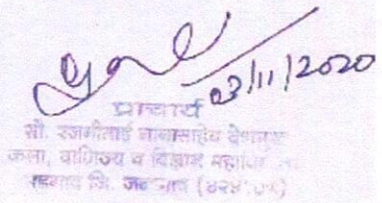 03/11/2020
प्राचार्य
सौ. रजनीताई नानासाहेब देशमुख
कला, वाणिज्य व विज्ञान महाविद्यालय
जि. जळगाव